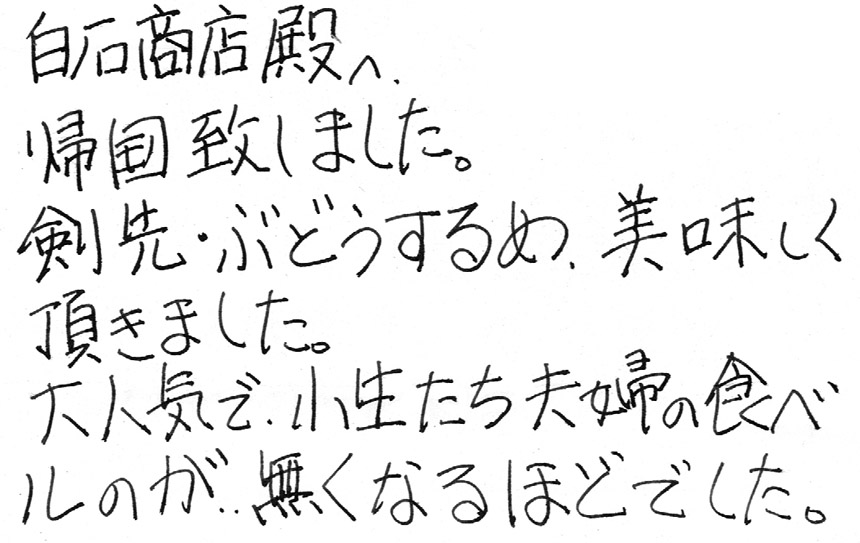 白石商店殿へ.
帰国致しました。
剣先・ぶどうするめ、美味しく
頂きました。
大人気で、小生たち夫婦の食べ
ルのが、無くなるほどでした。